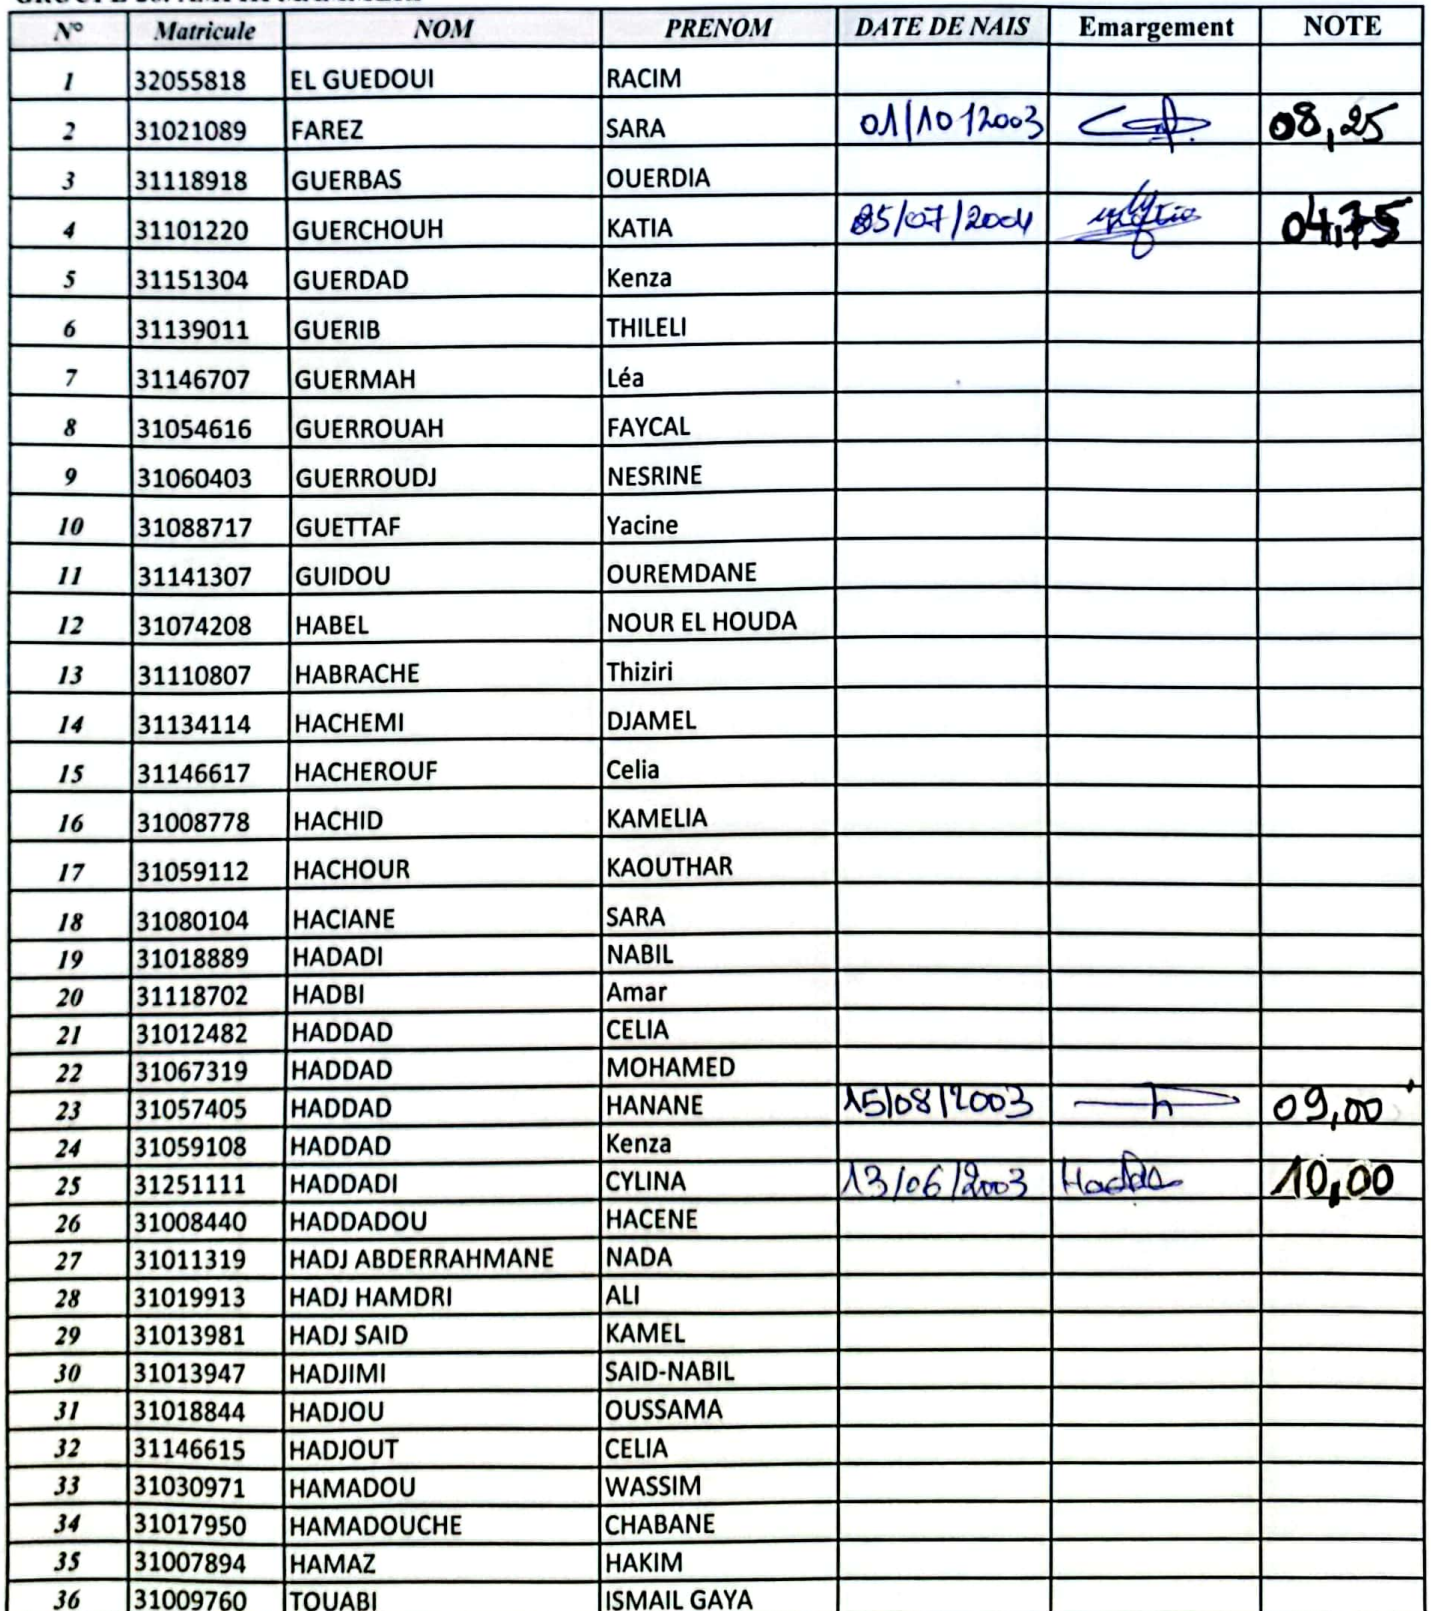 N° Matricule NOM PRENOM DATE DE NAIS Emargement NOTE
1 32055818 EL GUEDOUI RACIM
2 31021089 FAREZ SARA 01/10/2003 08,25
3 31118918 GUERBAS OUERDIA
4 31101220 GUERCHOUH KATIA 25/07/2004 04,75
5 31151304 GUERDAD Kenza
6 31139011 GUERIB THILELI
7 31146707 GUERMAH Léa
8 31054616 GUERROUAH FAYCAL
9 31060403 GUERROUDJ NESRINE
10 31088717 GUETTAF Yacine
11 31141307 GUIDOU OUREMDANE
12 31074208 HABEL NOUR EL HOUDA
13 31110807 HABRACHE Thiziri
14 31134114 HACHEMI DJAMEL
15 31146617 HACHEROUF Celia
16 31008778 HACHID KAMELIA
17 31059112 HACHOUR KAOUTHAR
18 31080104 HACIANE SARA
19 31018889 HADADI NABIL
20 31118702 HADBI Amar
21 31012482 HADDAD CELIA
22 31067319 HADDAD MOHAMED
23 31057405 HADDAD HANANE 15/08/2003 09,00
24 31059108 HADDAD Kenza
25 31251111 HADDADI CYLINA 13/06/2003 10,00
26 31008440 HADDADOU HACENE
27 31011319 HADJ ABDERRAHMANE NADA
28 31019913 HADJ HAMDRI ALI
29 31013981 HADJ SAID KAMEL
30 31013947 HADJIMI SAID-NABIL
31 31018844 HADJOU OUSSAMA
32 31146615 HADJOUT CELIA
33 31030971 HAMADOU WASSIM
34 31017950 HAMADOUCHE CHABANE
35 31007894 HAMAZ HAKIM
36 31009760 TOUABI ISMAIL GAYA